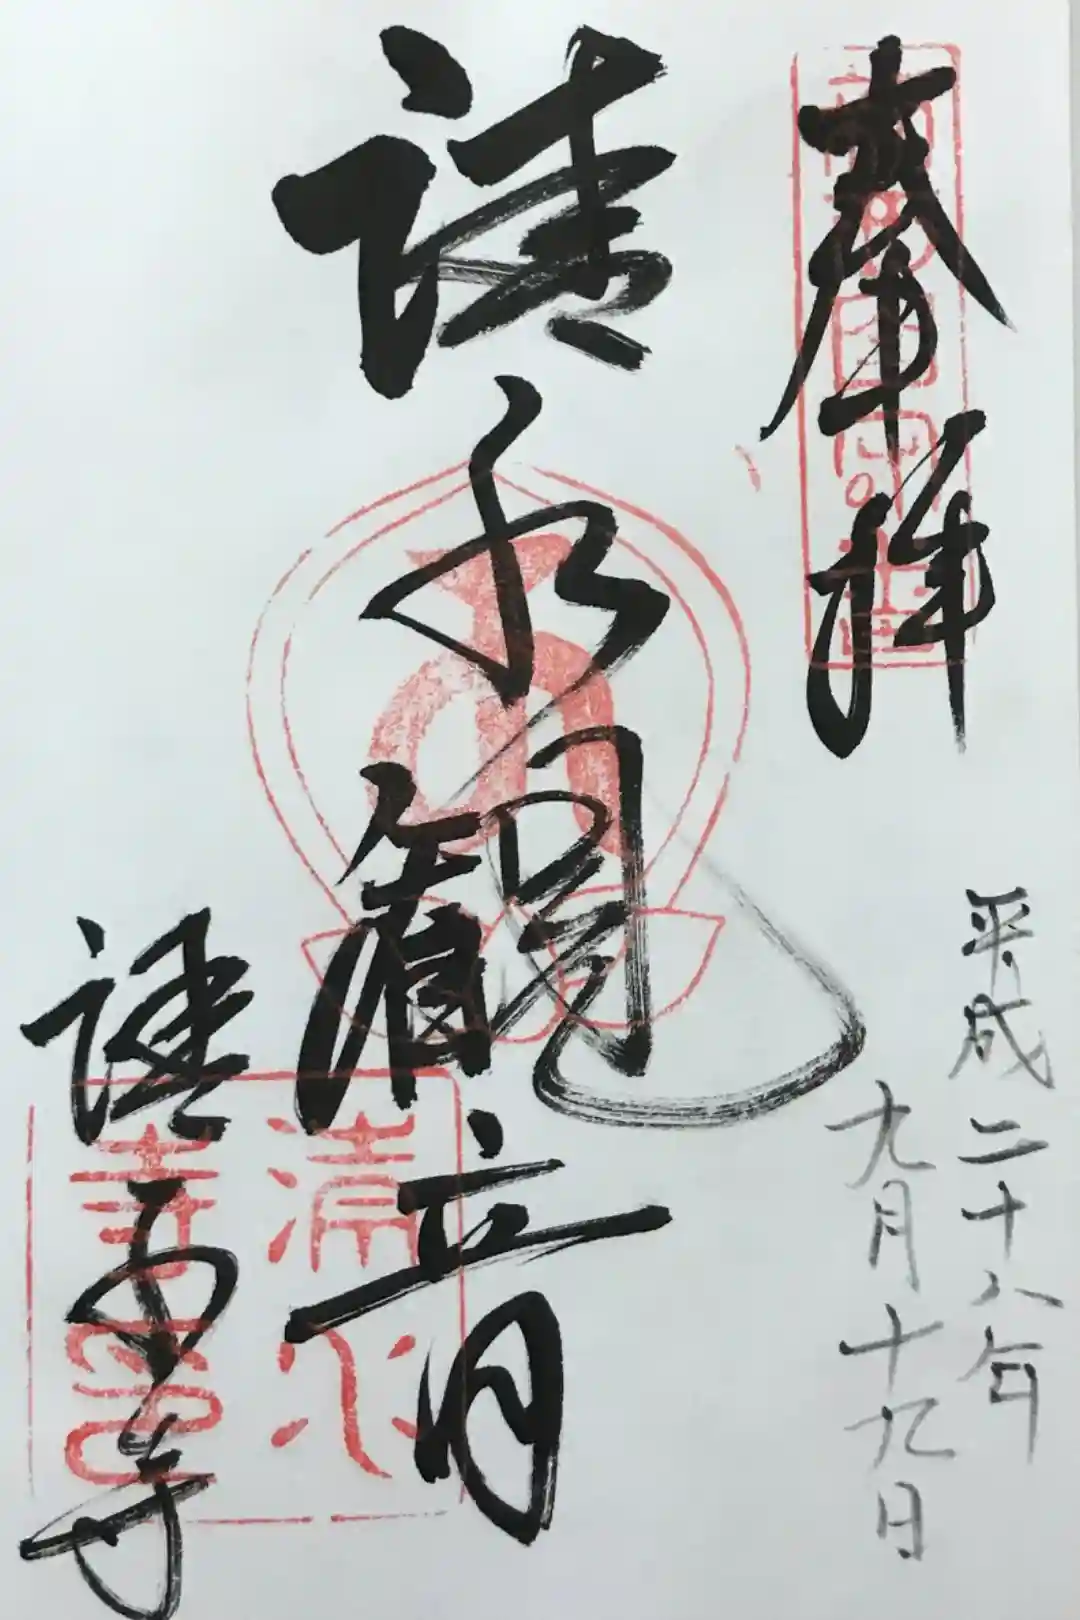 奉拝
平成二十八年
九月十九日
清水観音
清水寺
清水寺印